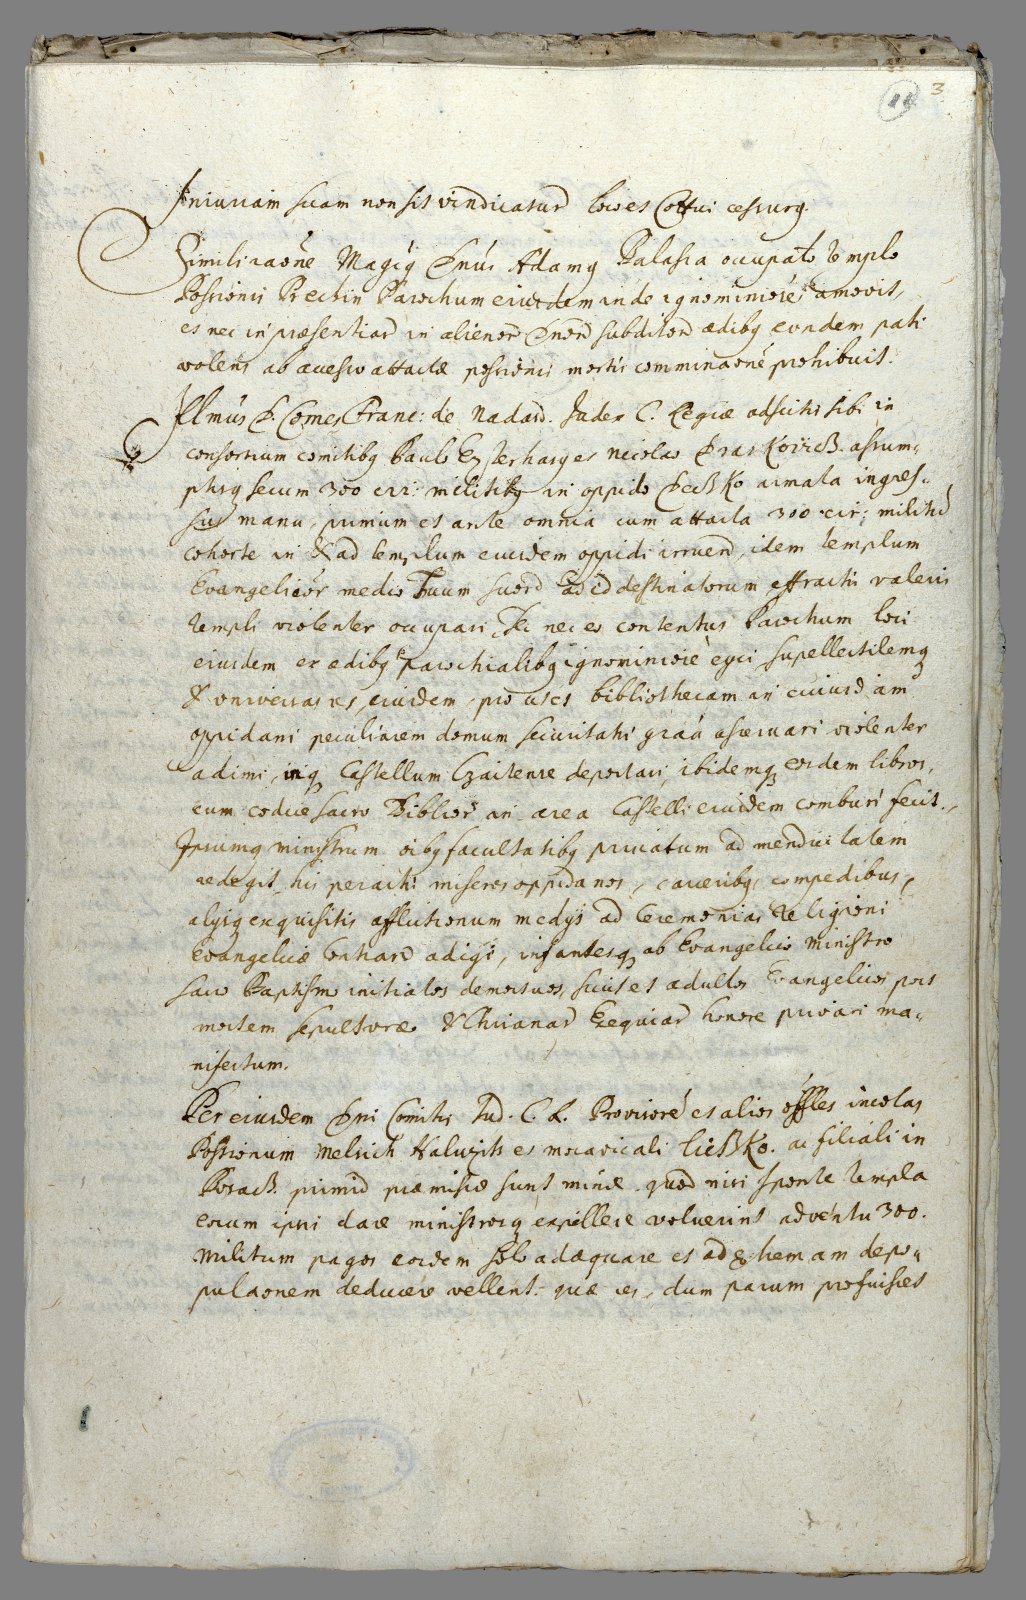 3
Iniuriam suam non sit vindicatur
Simili raōne Magcq Dnus Adamq Balassa occupato templo
Possionis Prectin Parochum eiusdem inde ignominiose amovit,
et nec in præsentiar in alienor Dnor subditor ædibq eundem pati
volens ab accessu attactæ possionis mortis comminaōne prohibuit.
Illmus D. Comes Franc: de Nadasd. Judex C. Regiæ adscitis sibi in
consortium comitibq Paulo Eszterhasy et Nicolao Draskovich. assum-
ptisq secum 300 cir: militibq in oppido armata ingres-
sus manu, primum et ante omnia cum attacta 300 cir: militu
cohorte in & ad templum eiusdem oppidi irruens, idem templum
Evangelicor medio suor ad id destinatorum effractis valvis
templi violenter occupari, nec eo contentus Parochum loci
eiusdem ex edibq parochialibq ignominiose eijci supellectilemq
& universas res eiusdem, bibliothecam in cuiusdam
oppidani peculiarem domum securitatis graā asservari violenter
adimi, inq Castellum Czeitense deportari, ibidemq eosdem libros,
cum codice sacro Biblior in area Castelli eiusdem comburi fecit.
Ipsumq ministrum oībq facultatibq privatum ad mendicitatem
redegit, his peractis miseros oppidanos, carceribq, compedibus,
alijsq exquisitis afflictionum medijs ad Ceremonias Religioni
Evangelicæ contrar adigi, infantesq ab Evangelico ministro
sacro Baptismo initiatos demortuos, sicut et adultos Evangelicos post
mortem sepulturæ & Chrianar Exequiar honore privari ma-
nifestum.
Per eiusdem Dni Comitis Jud. C. R. Provisore et alios offles incolas
Possionum Melsicz Haluzics et ac filiali in
præmissæ sunt minæ. quod nisi sponte templa
eorum ipsi dare ministrosq expellere voluerint adventu 300.
militum pagos eosdem solo adæquare et ad depo-
pulaōnem deducere vellent: quæ res, dum parum profuisset